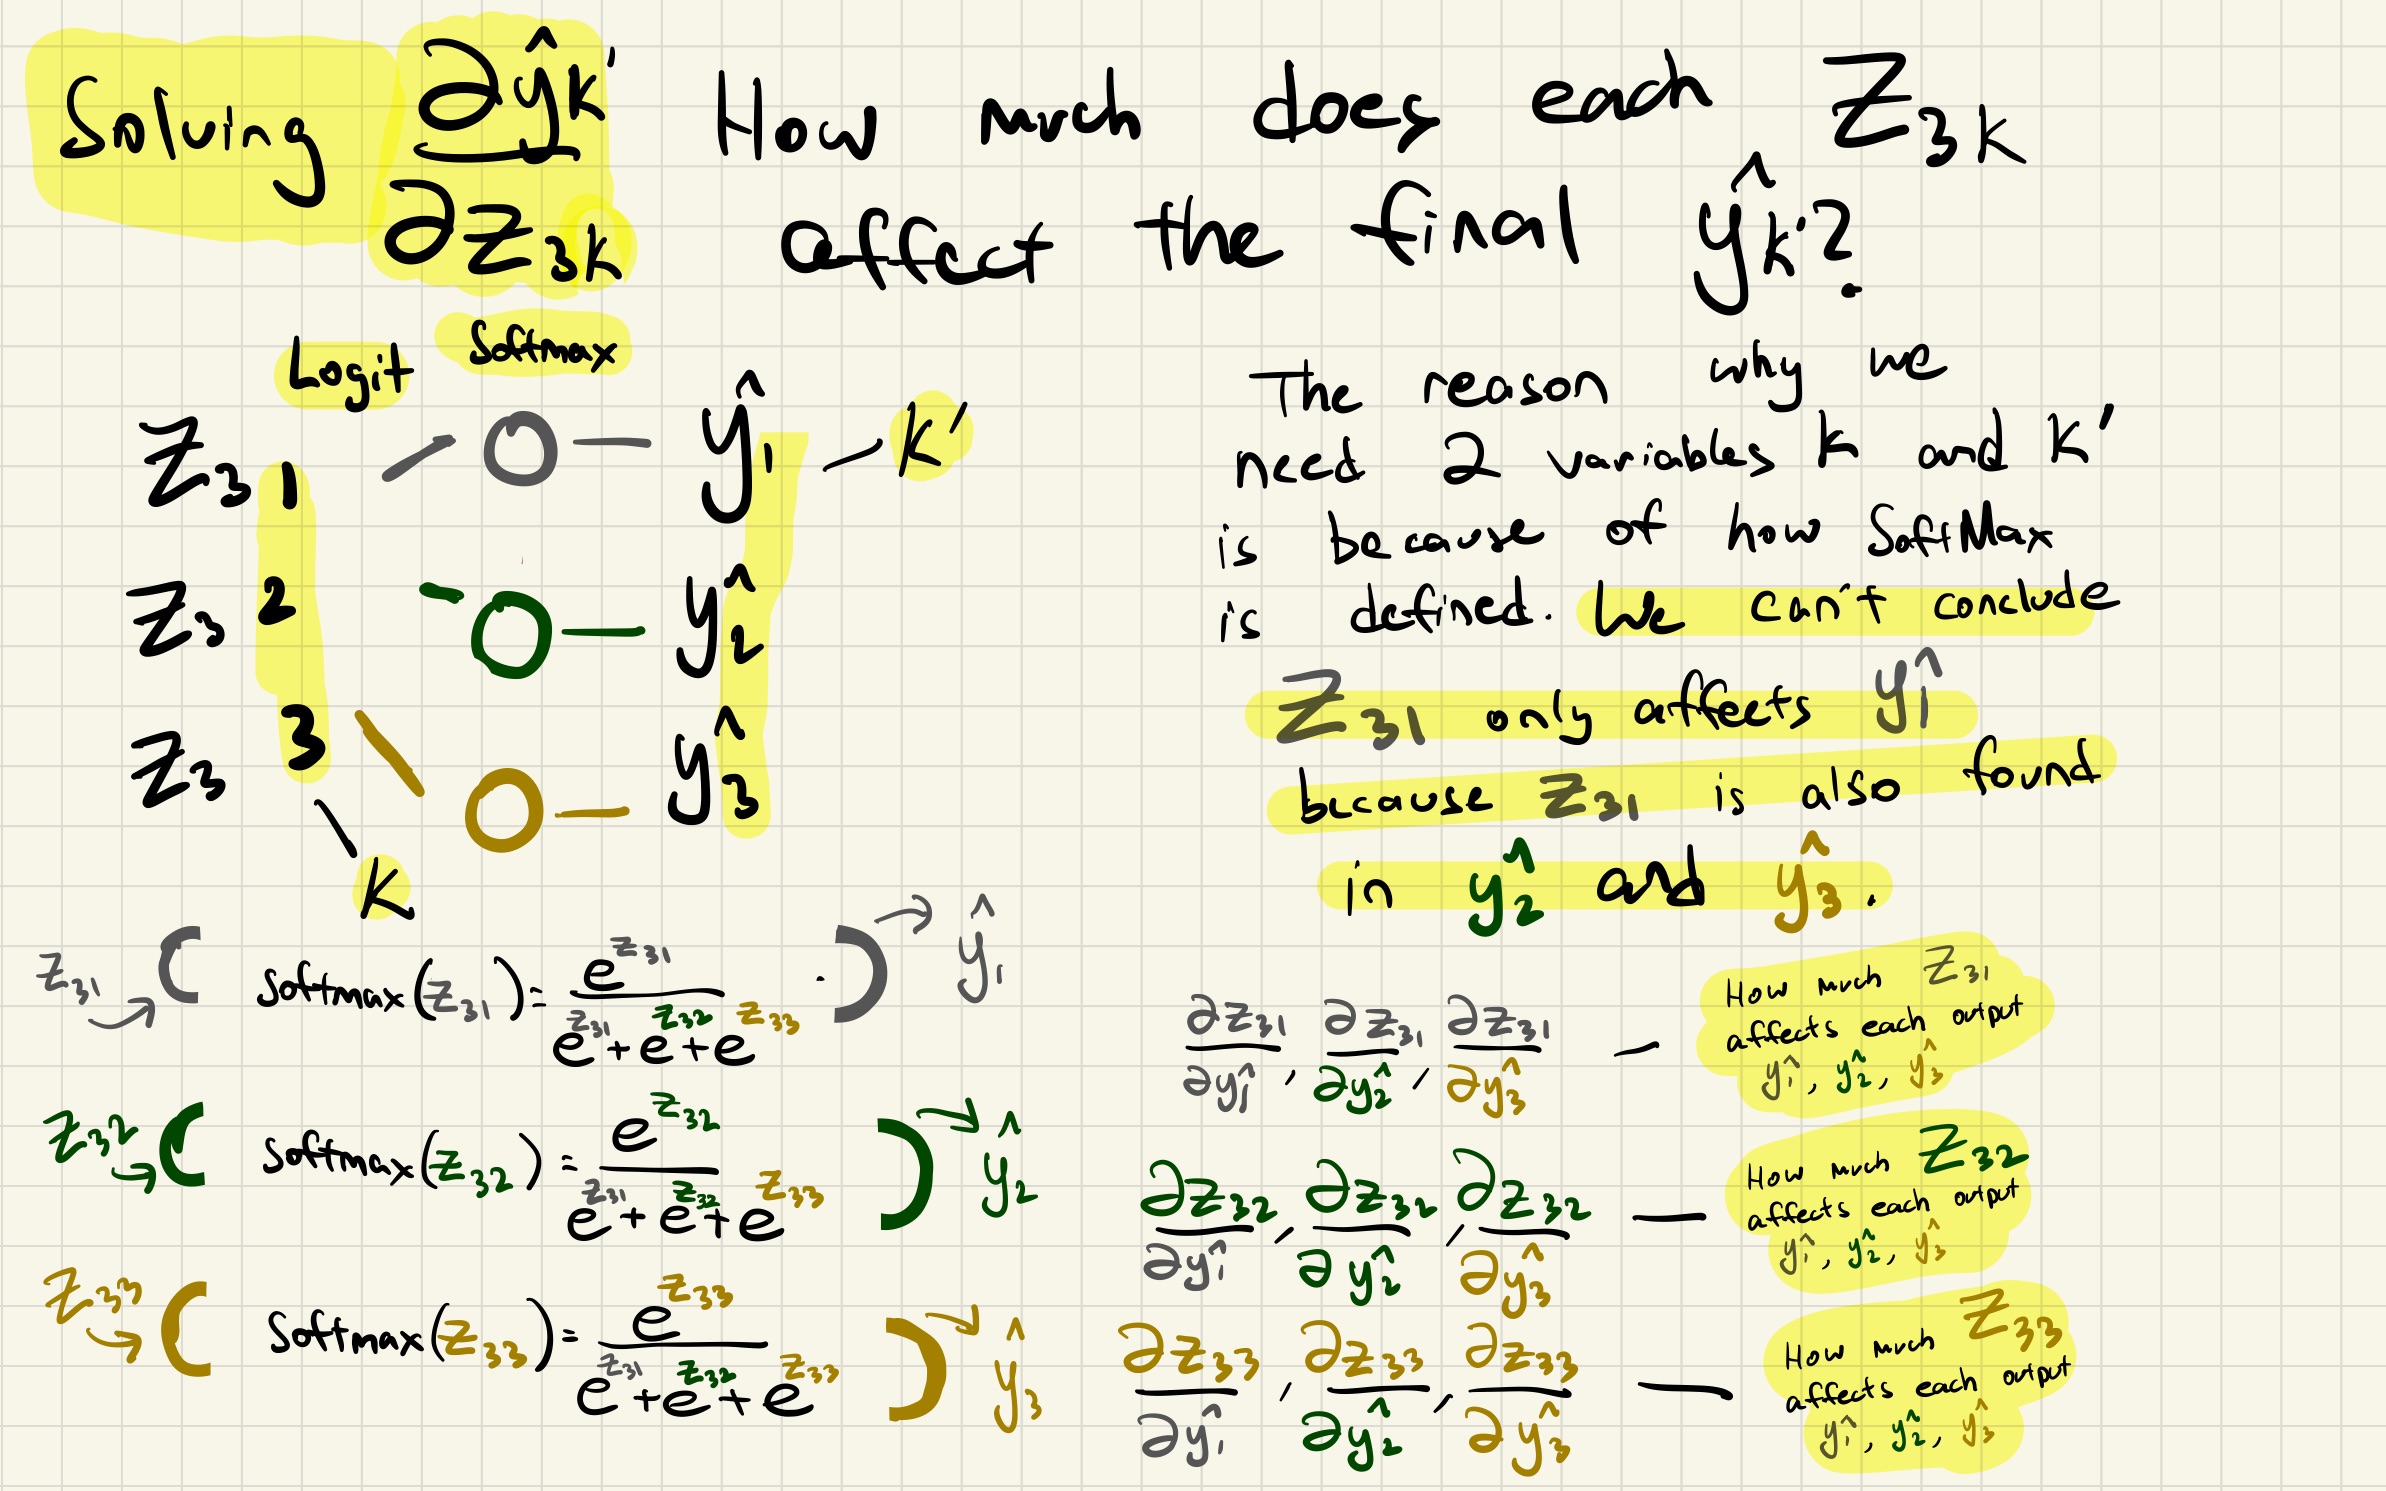 Solving ∂ŷk' / ∂z3k How much does each z3k
affect the final ŷk'?
Logit Softmax
z31 ŷ1 k'
z32 ŷ2
z33 ŷ3
k
The reason why we
need 2 variables k and k'
is because of how SoftMax
is defined. We can't conclude
z31 only affects ŷ1
because z31 is also found
in ŷ2 and ŷ3.
z31 ( softmax(z31) = e^z31 / e^z31 + e^z32 + e^z33 . ) → ŷ1
z32 ( softmax(z32) = e^z32 / e^z31 + e^z32 + e^z33 ) → ŷ2
z33 ( softmax(z33) = e^z33 / e^z31 + e^z32 + e^z33 ) → ŷ3
∂z31 / ∂ŷ1 , ∂z31 / ∂ŷ2 , ∂z31 / ∂ŷ3 —
How much z31
affects each output
ŷ1, ŷ2, ŷ3
∂z32 / ∂ŷ1 , ∂z32 / ∂ŷ2 , ∂z32 / ∂ŷ3 —
How much z32
affects each output
ŷ1, ŷ2, ŷ3
∂z33 / ∂ŷ1 , ∂z33 / ∂ŷ2 , ∂z33 / ∂ŷ3 —
How much z33
affects each output
ŷ1, ŷ2, ŷ3